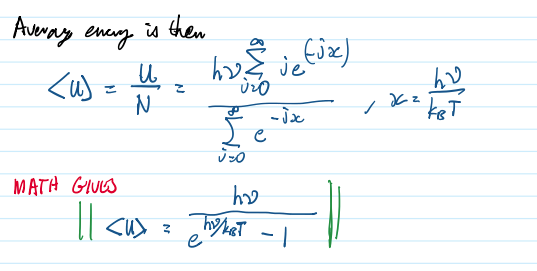 Average energy is then
<u> = U/N = hν ∑_{j=0}^{∞} j e^{(-jx)} / ∑_{j=0}^{∞} e^{-jx} , x = hν/k_BT
MATH GIVES
|| <u> = hν / (e^{hν/k_BT} - 1) ||